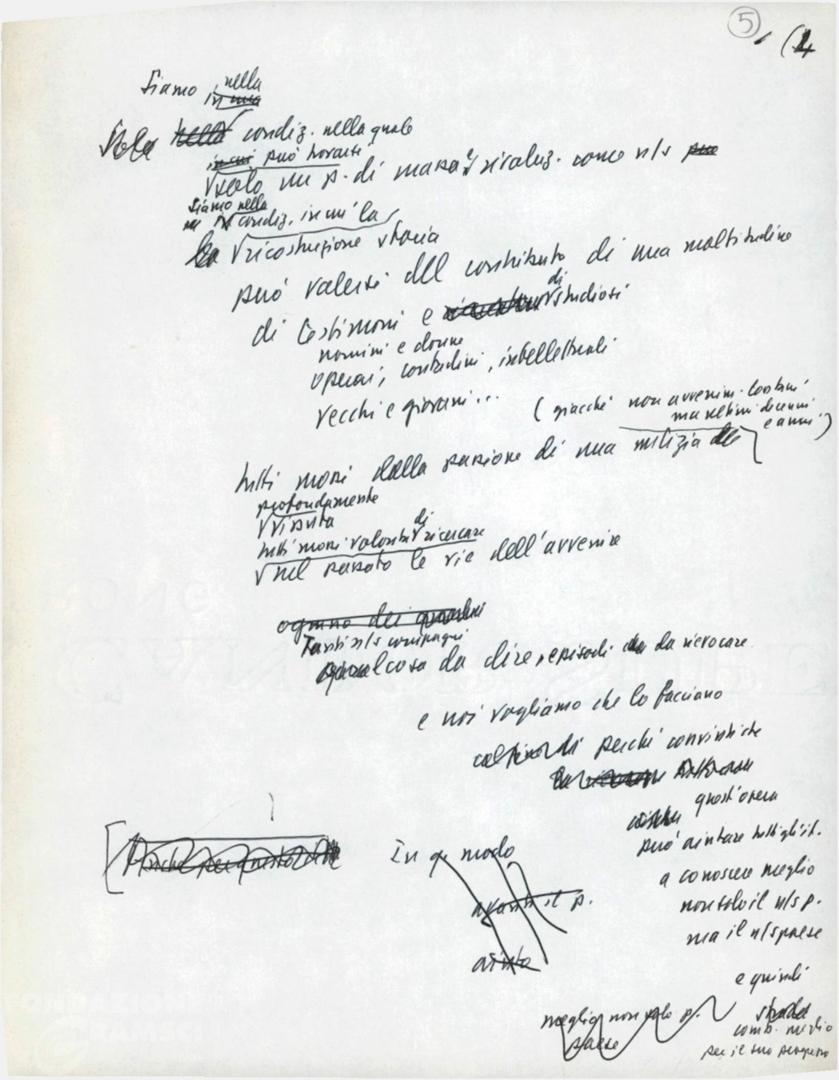 5 (4
Siamo nella
in una
Solo nella condiz. nella quale
in cui può trovarsi
solo un p. di massa e rivoluz. come n/s
Siamo nella
condiz. in cui la
la ricostruzione storia
può valersi del contributo di una moltitudine
di testimoni e di studiosi
uomini e donne
operai, contadini, intellettuali
vecchi e giovani...
(giacché non avvenim. lontani
ma ultimi decenni
e anni)
tutti mossi dalla passione di una milizia
profondamente
vissuta
tutti mossi volontà di ricercare
nel passato le vie dell'avvenire
ognuno dei quali
Tanti n/s compagni
qualcosa da dire, episodi da rievocare
e noi vogliamo che lo facciano
perché convinti che
quest'opera
può aiutare tutti gli it.
a conoscere meglio
non solo il n/s p.
ma il n/s paese
In q. modo
avanti il p.
aiuto
e quindi
meglio non solo p.
paese
comb. meglio
per il suo progresso